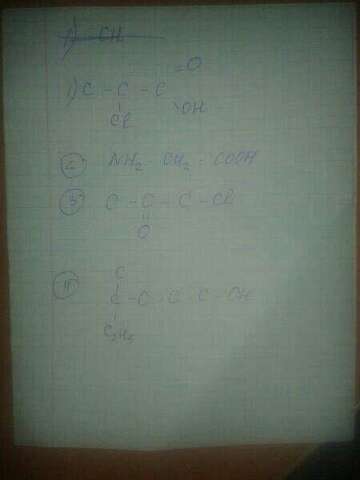 1) CH
=O
1) C - C - C
\OH
Cl
2) NH2 - CH2 - COOH
3) C - C - C - Cl
O
C
C - C - C - C - OH
C2H5